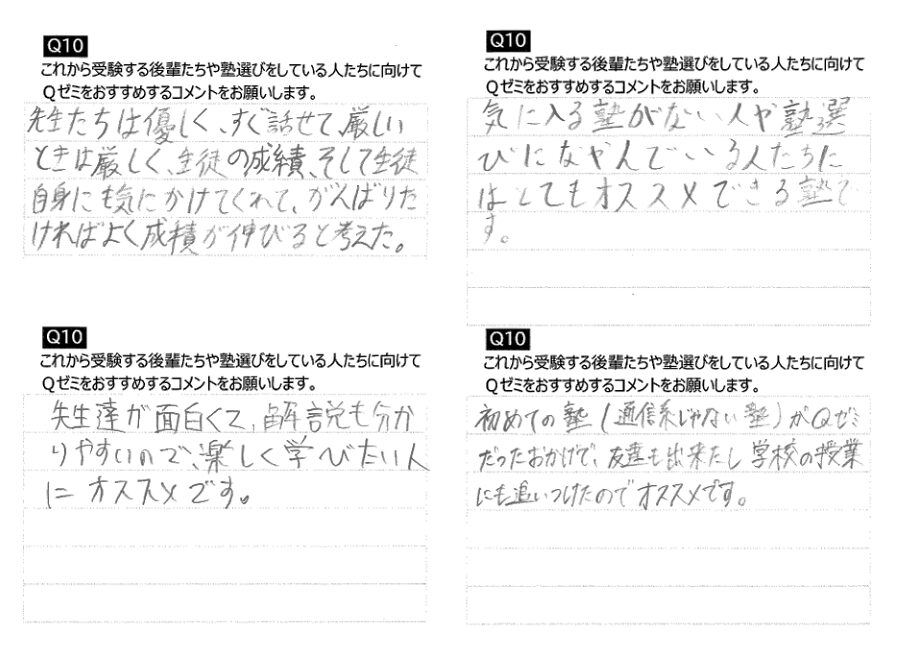 Q10
これから受験する後輩たちや塾選びをしている人たちに向けて
Qゼミをおすすめするコメントをお願いします。
先生たちは優しく、すぐ話せて、厳しい
ときは厳しく、生徒の成績、そして生徒
自身にも気にかけてくれて、がんばりた
ければよく成積が伸びると考えた。
Q10
これから受験する後輩たちや塾選びをしている人たちに向けて
Qゼミをおすすめするコメントをお願いします。
気に入る塾がない人や塾選
びになやんでいる人たちに
はとてもオススメできる塾で
す。
Q10
これから受験する後輩たちや塾選びをしている人たちに向けて
Qゼミをおすすめするコメントをお願いします。
先生達が面白くて、解説も分か
りやすいので、楽しく学びたい人
に オススメです。
Q10
これから受験する後輩たちや塾選びをしている人たちに向けて
Qゼミをおすすめするコメントをお願いします。
初めての塾(通信系じゃない塾)がQゼミ
だったおかげで、友達も出来たし学校の授業
にも追いつけたのでオススメです。